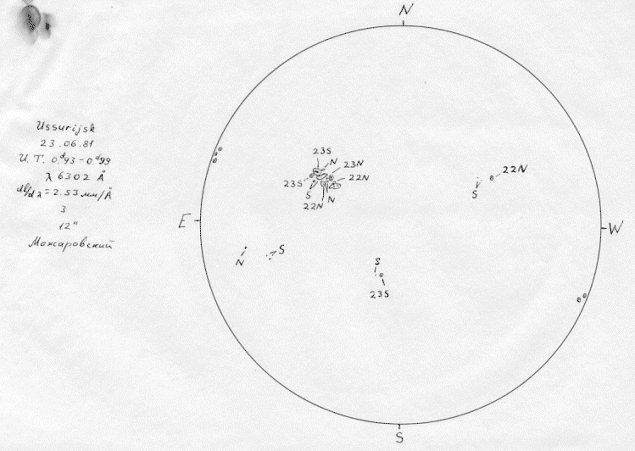 N
Ussurijsk
23.06.81
U.T. 0.ᵈ93-0.ᵈ99
λ 6302 Å
dl/dλ = 2.53 мм/Å
3
12"
Можаровский
23S
N
23N
22N
23S
S
22N
N
22N
S
E
W
N
S
S
23S
S